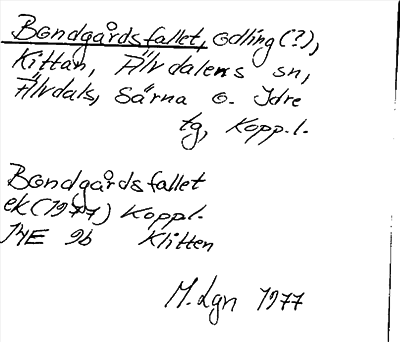 Bondgårdsfallet, odling(?),
Kittan, Älvdalens sn,
Älvdals, Särna o. Idre
tg, Kopp.l.
Bondgårdsfallet
ek (1977) Koppl.
14E 9b Klitten
M. Lgn 1977